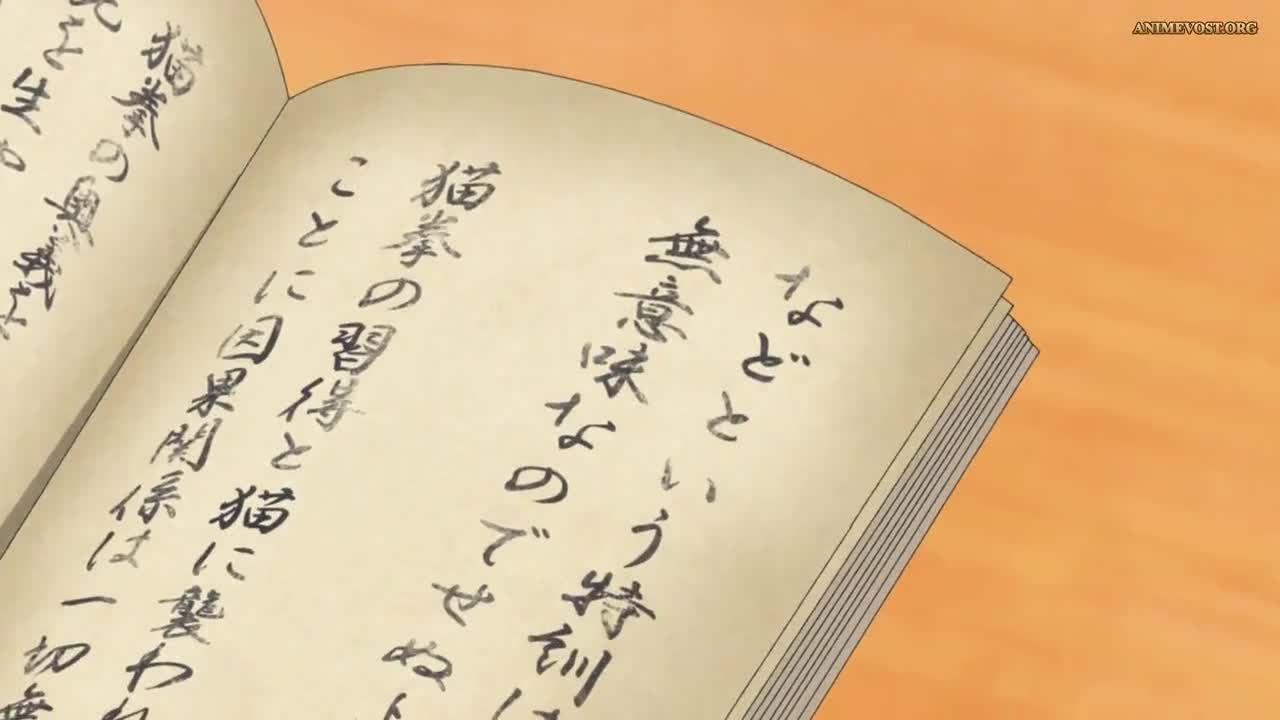 などという特訓は
無意味なのでせぬ
猫拳の習得と猫に襲われ
ことに因果関係は一切無
猫拳の奥義
を生
ANIMEVOST.ORG